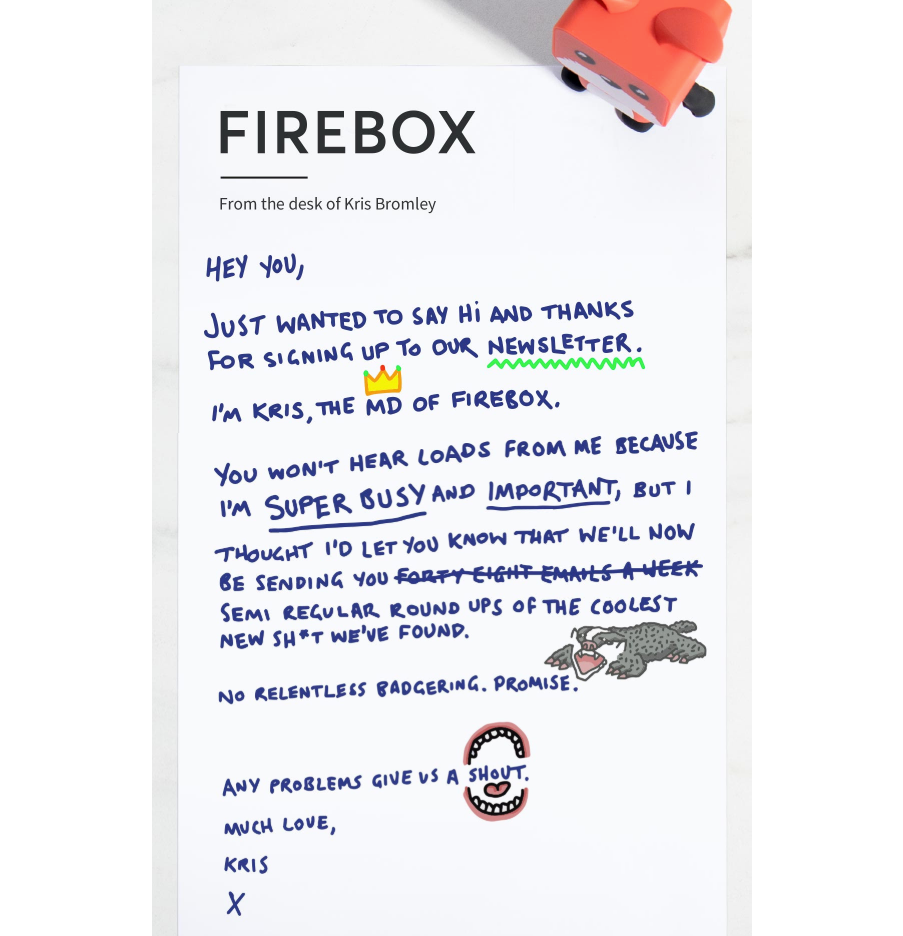 FIREBOX
From the desk of Kris Bromley
HEY YOU,
JUST WANTED TO SAY Hi AND THANKS
FOR SIGNING UP TO OUR NEWSLETTER.
I'M KRIS, THE MD OF FIREBOX.
YOU WON'T HEAR LOADS FROM ME BECAUSE
I'M SUPER BUSY AND IMPORTANT, BUT I
THOUGHT I'D LET YOU KNOW THAT WE'LL NOW
BE SENDING YOU FORTY EIGHT EMAILS A WEEK
SEMI REGULAR ROUND UPS OF THE COOLEST
NEW SH*T WE'VE FOUND.
NO RELENTLESS BADGERING. PROMISE.
ANY PROBLEMS GIVE US A SHOUT.
MUCH LOVE,
KRIS
X